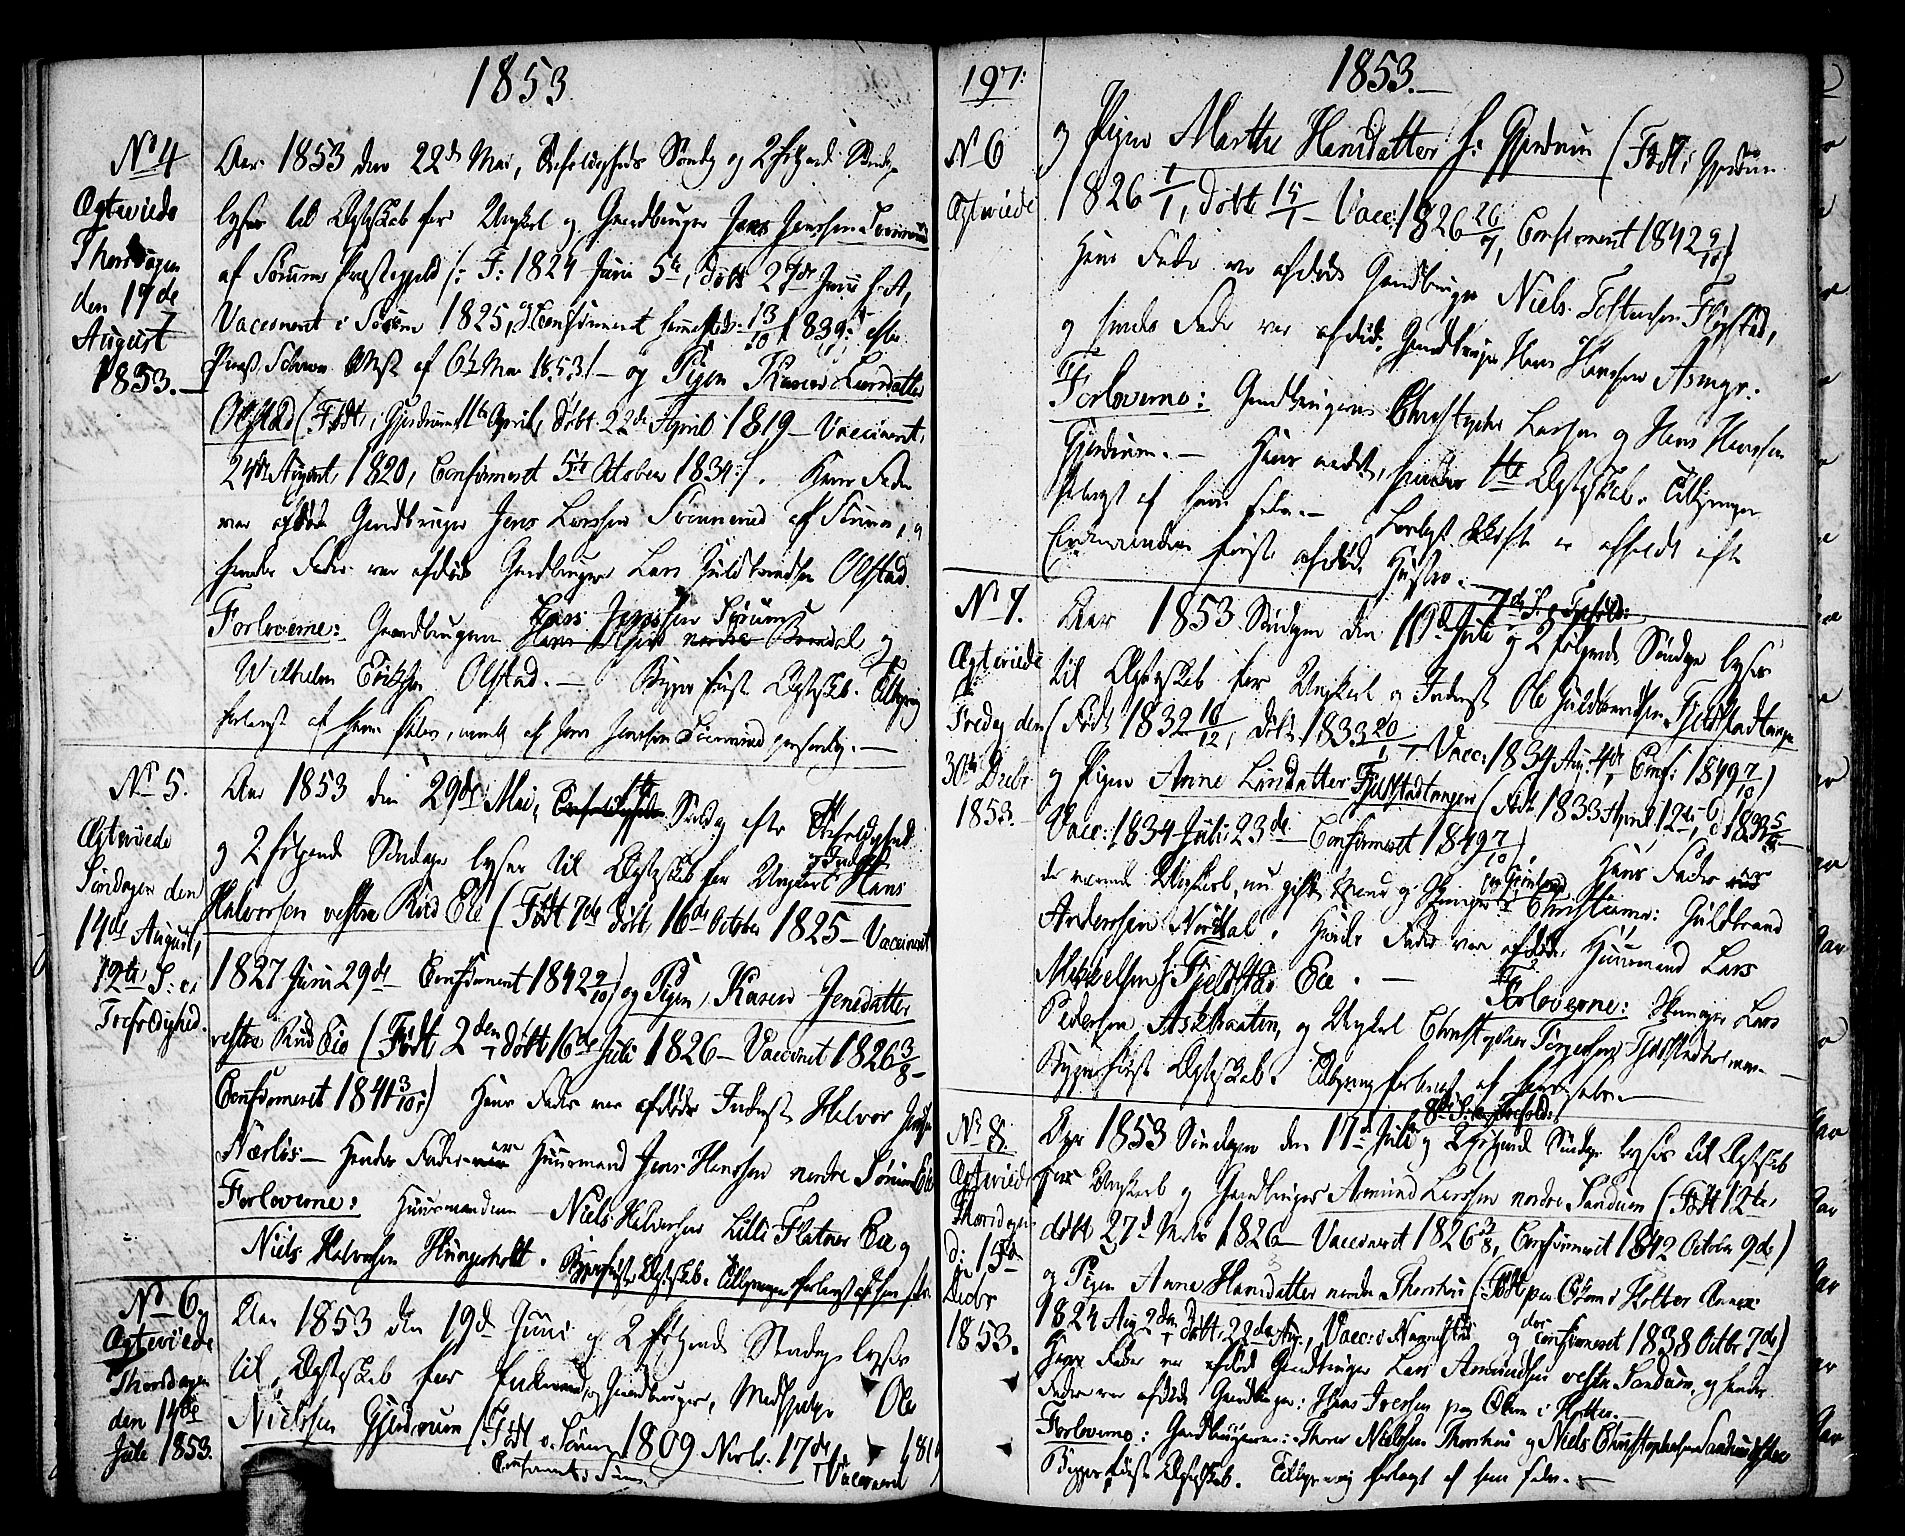 1853
No 4
Ægteviede
Thorsdagen
den 17de
August
1853.—
Aar 1853 den 22de Mai, Trefoldigheds Søndag og 2 følgende Søndage
lyses til Ægteskab for Ungkarl og Gaardbruger Jens Jenssen
af Sørums Præstegjeld /: F: 1824 Juni 5te, døbt 27de Juni s. A,
Vaccineret i Sørum 1825, Confirmeret 13/10 1839; efter
Attest af 6te Mai 1853:/ — og Pigen Karen Larsdatter
Olstad (Født i Gjerdrum April, døbt 22de April 1819 — Vaccineret,
24de August, 1820, Confirmeret 5te October 1834:/. Hans Fader
var afdøde Gaardbruger Jens Larssen af Sørum, og
hendes Fader var afdøde Gaardbruger Lars Guldbrandsen Olstad
Forloverne: Gaardbrugerne Lars Jenssen Sørum og
Wilhelm Erichsen Olstad. — Begges første Ægteskab. Tillysning
forlangt af ham selv, nemlig af Jens Jenssen personlig. —
No 5.
Ægteviede
Søndagen den
14de August,
12te S: e:
Trefoldighed.
Aar 1853 den 29de Mai, 1ste Søndag efter Trefoldighed
og 2 følgende Søndage lyses til Ægteskab for Ungkarl Hans
Halvorsen vestre Rud Eie (Født 7de døbt 16de October 1825 — Vaccineret
1827 Juni 29de Confirmeret 1842 2/10) og Pigen, Karen Jensdatter
vestre Rud Eie (Født 2den døbt 16de Juli 1826 — Vaccineret 1826 3/8 —
Confirmeret 1841 3/10:) Hans Fader var afdøde Inderst Halvor
Nærlös — Hendes Fader er Huusmand Jens Hanssen nordre Sørum Eie
Forloverne: Huusmændene — Niels Halvorsen Lille Flatner Eie og
Niels Halvorsen Hungerholt. Begges første Ægteskab. Tillysningen forlangt af ham selv.
No 6,
Ægteviede
Thorsdagen
den 14de
Juli 1853.
Aar 1853 den 19de Juni og 2 følgende Søndage lyses
til Ægteskab for Enkemand og Gaardbruger, Ole
Nielssen Gjerdrum (Født i Sørum 1809 Novbr. 17de, 1810
Confirmeret i Sørum Vaccineret
197:
1853.—
No 6
Ægteviede
og Pigen Marthe Hansdatter s: Gjerdrum (Født i Gjerdrum
1826 1/1, døbt 15/1 — Vacc: 1826 26/7, Confirmeret 1842 9/10)
Hans Fader var afdøde Gaardbruger Niels Tostensen Flogstad,
og hendes Fader var afdøde Gaardbruger Hans Hanssen Asmyr.
Forloverne: Gaardbrugerne Christopher Larssen og Hans Hanssen
Gjerdrum. — Hans andet, hendes 1ste Ægteskab. Tillysningen
forlangt af ham selv. — Lovligt Skifte er afholdt efter
Enkemandens første afdøde Hustro. —
No 7.
Ægteviede
Fredag den
30te Decbr.
1853.
7de S. e. Trefold:
Aar 1853 Søndagen den Juli og 2 følgende Søndage lyses
til Ægteskab for Ungkarl og Inderst Ole Guldbrandsen Fjeldstadtangen
(Født 1832 16/12, døbt 1833 20/1 — Vacc: 1834 Aug: 4de, Conf: 1849 7/10)
og Pigen Anne Larsdatter Fjeldstadtangen (Født 1833 April 12te
Vacc: 1834 Juli 23de Confirmeret 1849 7/10). Hans Fader
da værende Ungkarl, nu gift Mand i Christiania: Guldbrand
Anderssen Nordal. Hendes Fader var afdøde Huusmand Lars
Mikkelsen s: Fjeldstad Eie. — Forloverne: Lars
Pedersen Askkraaten, og Ungkarl Christopher Torgersen
Begges første Ægteskab. Tillysning forlangt af ham selv. —
No 8.
Ægteviede
Thorsdagen
d: 15de
Decbr
1853.
8de S. e. Trefold:
Aar 1853 Søndagen den 17de Juli og 2 følgende Søndage lyses til Ægteskab
for Ungkarl og Gaardbruger Asmund Larssen nordre Sandum (Født 12te,
døbt 27de 1826 — Vaccineret 1826 3/8, Confirmeret 1842 October 9de)
og Pigen Anna Hansdatter nordre Thorshus (Født paa i Holter Annex
1824 Aug 2den, døbt 22de Aug., Vacc: i Nannestad og der confirmeret 1838 Octbr 7de)
Hans Fader var afdøde Gaardbruger Lars Asmundsen vestre Sandum, og hendes
Fader var afdøde Gaardbruger: Hans Iversen paa i Holter. —
Forloverne: Gaardbrugerne: Thor Nielssen Thorshus og Niels Christophersen
Begges første Ægteskab. Tillysning forlangt af ham selv. —